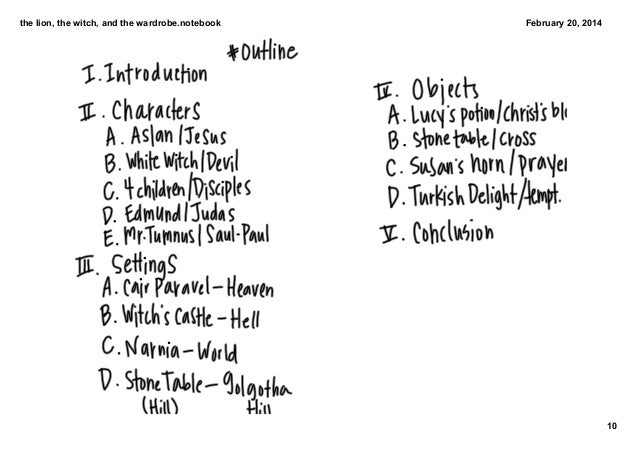 the lion, the witch, and the wardrobe.notebook
February 20, 2014
*Outline
I. Introduction
II. Characters
A. Aslan/Jesus
B. White Witch/Devil
C. 4 children/Disciples
D. Edmund/Judas
E. Mr. Tumnus/Saul-Paul
III. Settings
A. Cair Paravel-Heaven
B. Witch's Castle-Hell
C. Narnia-World
D. Stone Table-golgotha
(Hill) Hill
IV. Objects
A. Lucy's potion/Christ's bl
B. Stone table/cross
C. Susan's horn/prayer
D. Turkish Delight/tempt.
V. Conclusion
10